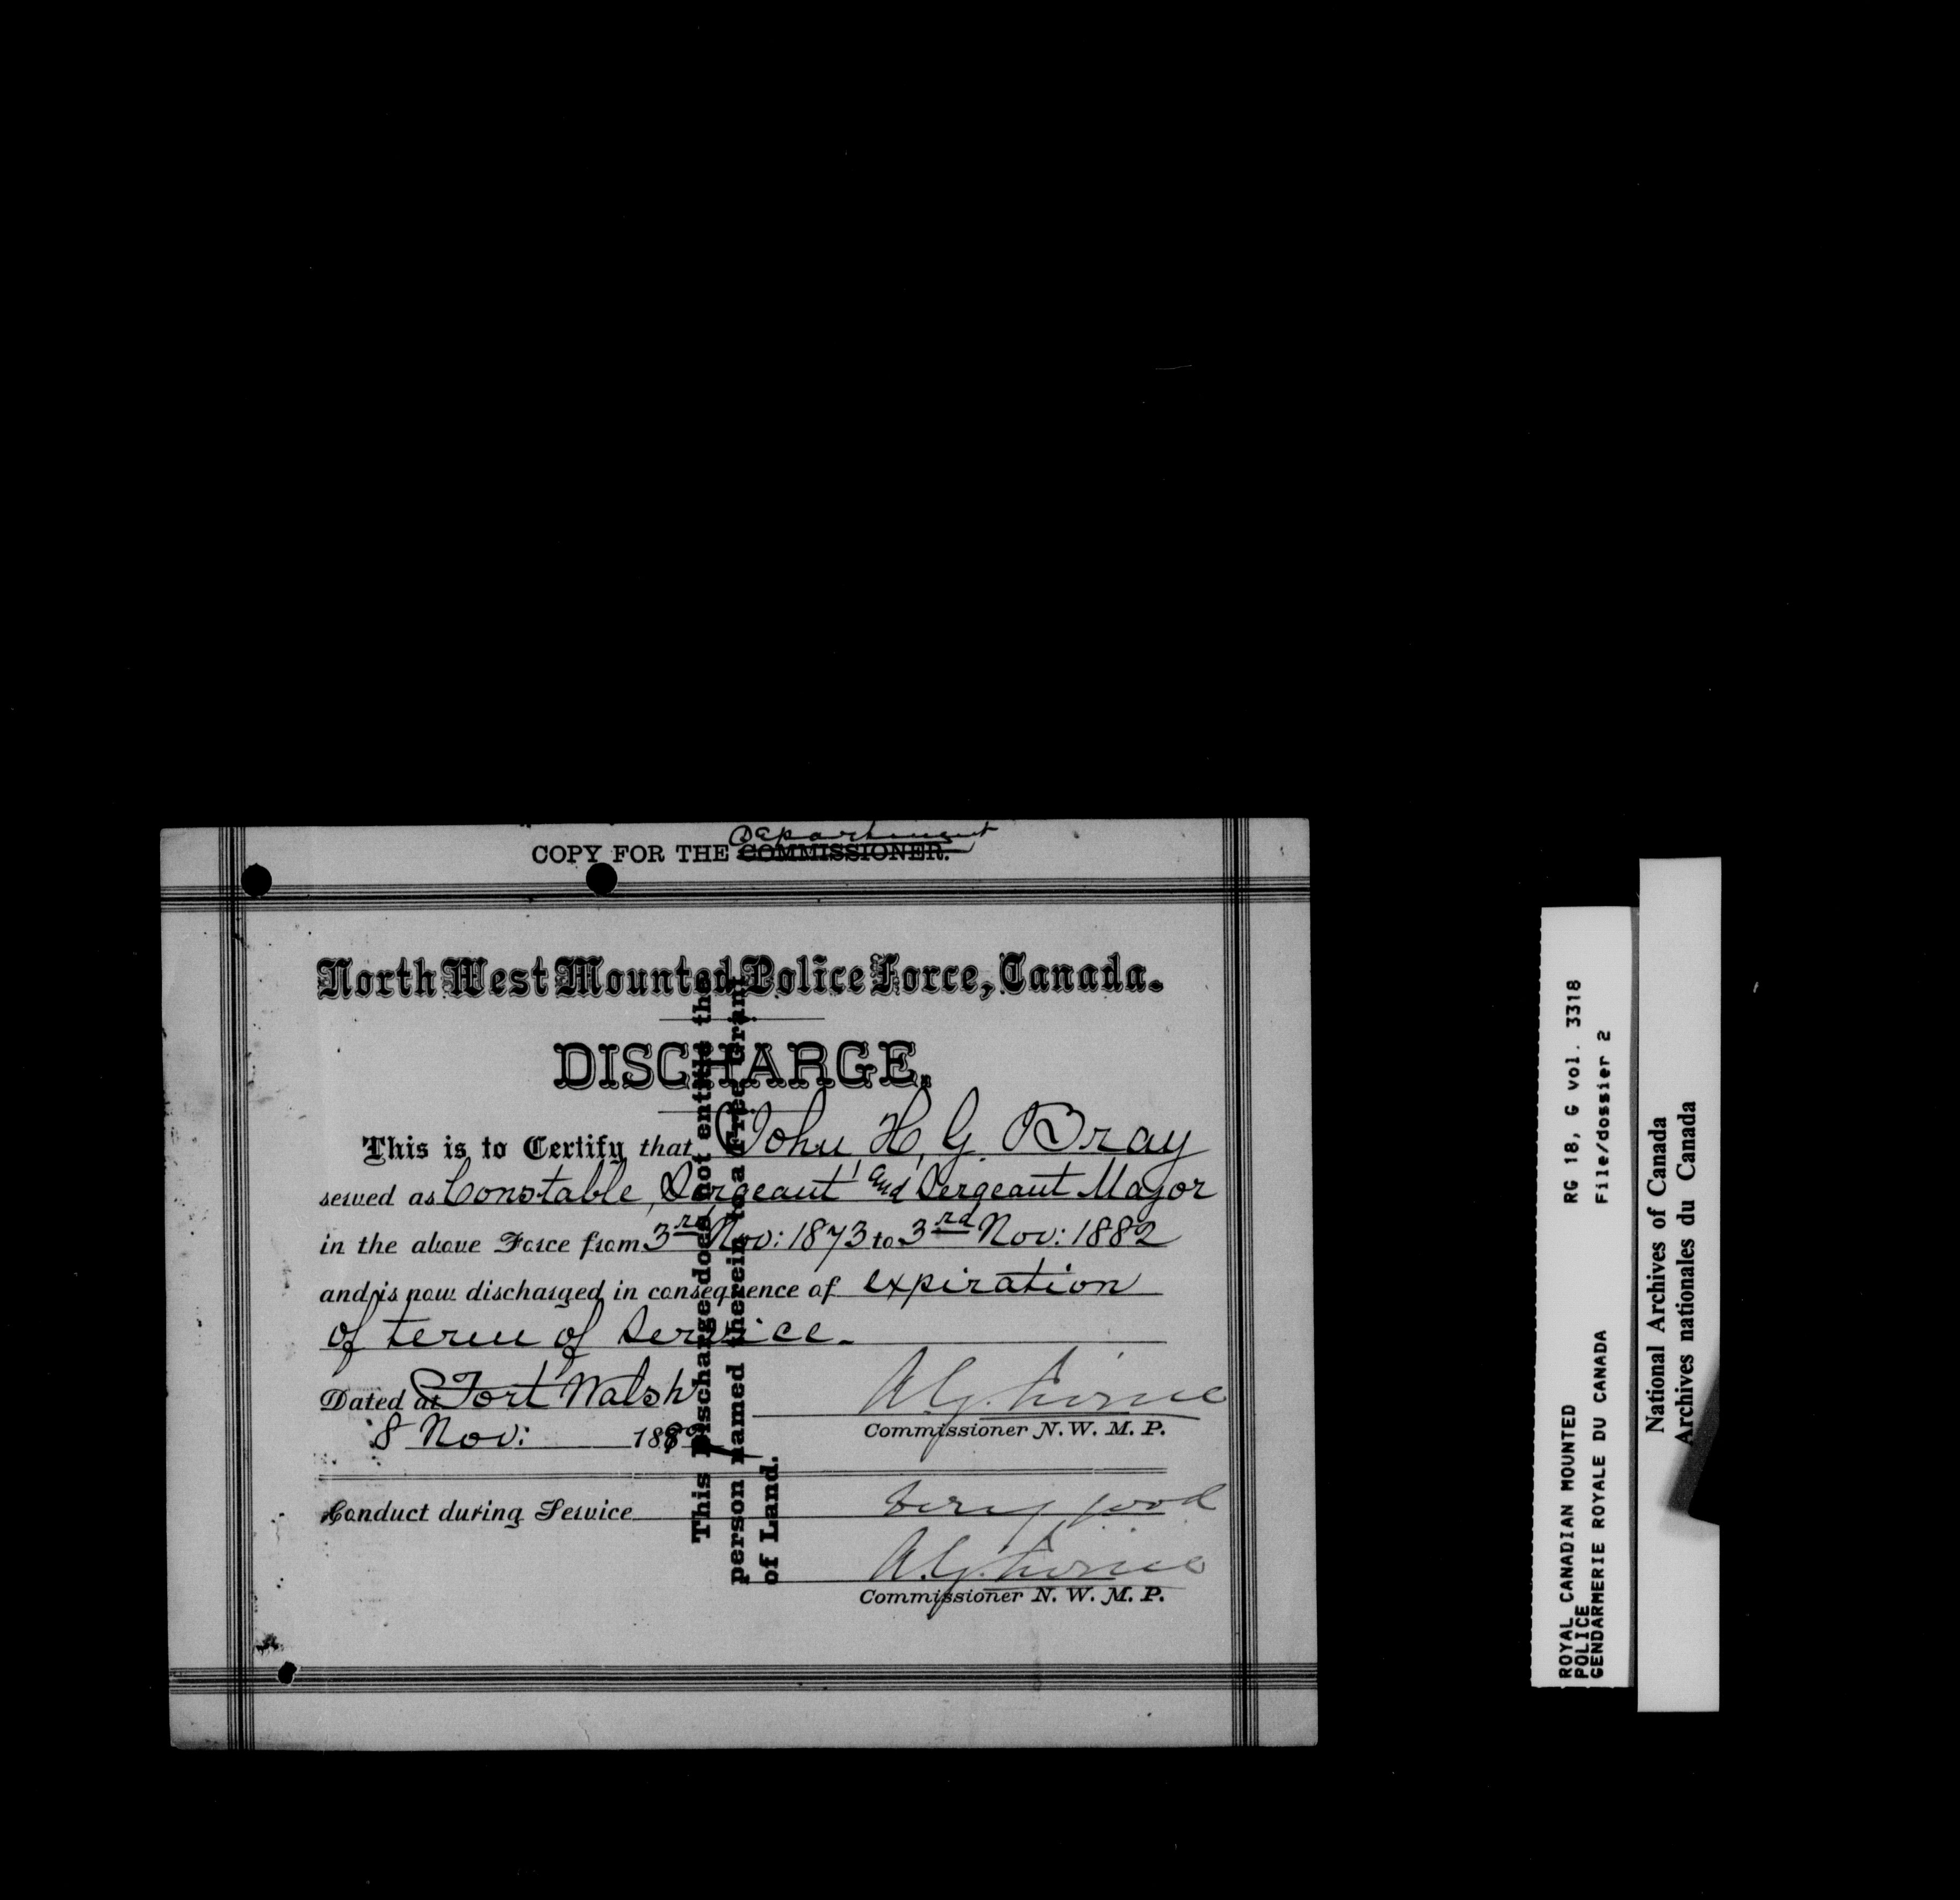 Department
COPY FOR THE COMMISSIONER.
North West Mounted Police Force, Canada.
DISCHARGE.
This is to Certify that John H. G. Bray
served as Constable, Sergeant and Sergeant Major
in the above Force from 3rd Nov: 1873 to 3rd Nov: 1882
and is now discharged in consequence of expiration
of term of Service.
Dated at Fort Walsh
8 Nov: 1882
A. G. Irvine
Commissioner N. W. M. P.
Conduct during Service very good
A. G. Irvine
Commissioner N. W. M. P.
This Discharge does not entitle the
person named therein to a Free Grant
of Land.
ROYAL CANADIAN MOUNTED RG 18, G vol. 3318
POLICE
GENDARMERIE ROYALE DU CANADA File/dossier 2
National Archives of Canada
Archives nationales du Canada